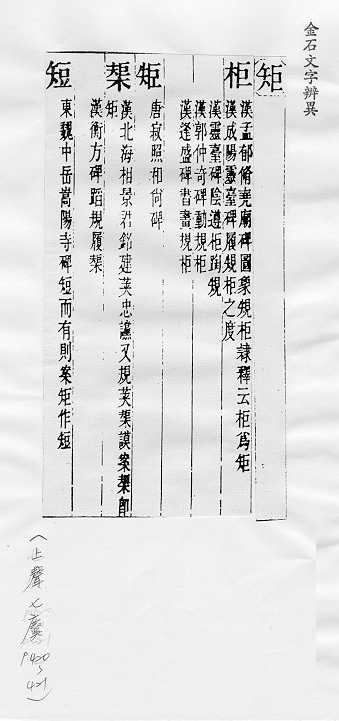 金石文字辨異
矩
柜
漢孟郁脩堯廟碑圖象規柜隸釋云柜爲矩
漢成陽靈臺碑履規柜之度
漢靈臺碑陰遵柜蹈規
漢郭仲奇碑動規柜
漢逢盛碑晝規柜
矩
唐寂照和尚碑
榘
漢北海相景君銘建䇿忠讜又規䇿榘謨案榘即矩
漢衡方碑蹈規履榘
短
東魏中岳嵩陽寺碑短而有則案矩作短
(上聲七麌
P420
~
421)